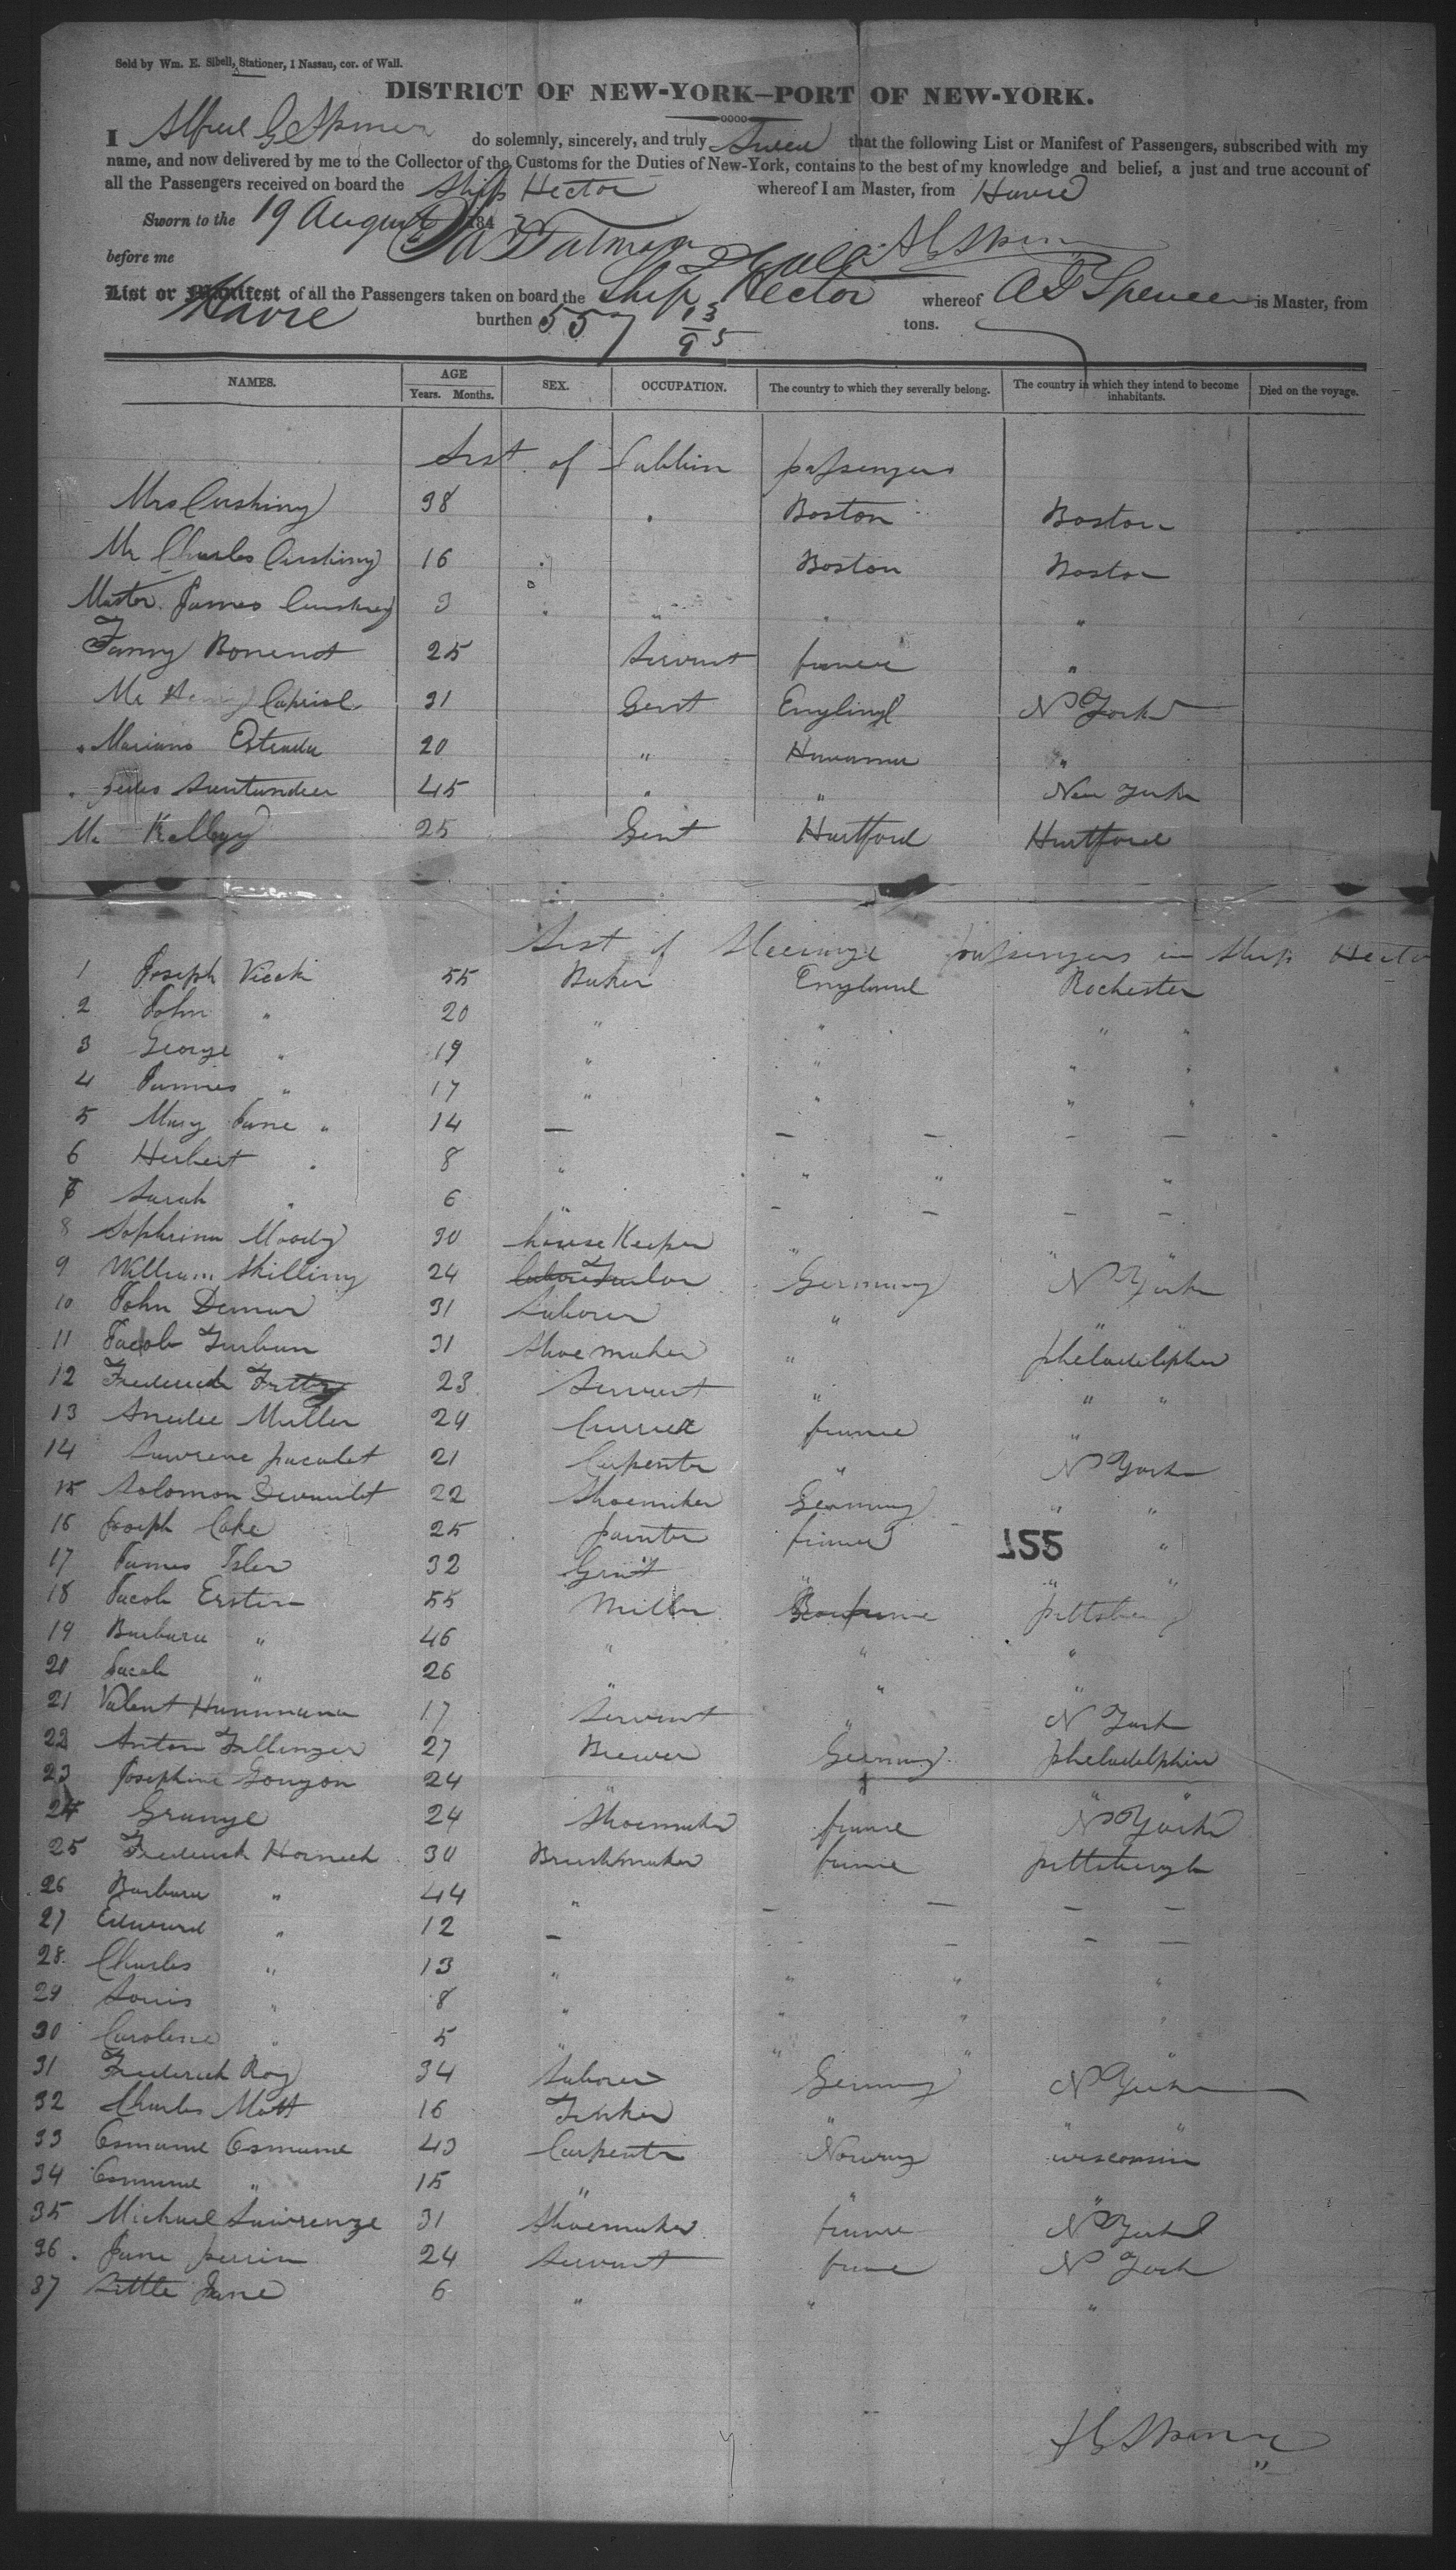 Sold by Wm. E. Sibell, Stationer, 1 Nassau, cor. of Wall.
DISTRICT OF NEW-YORK—PORT OF NEW-YORK.
I Alfred G Spencer do solemnly, sincerely, and truly Swear that the following List or Manifest of Passengers, subscribed with my
name, and now delivered by me to the Collector of the Customs for the Duties of New-York, contains to the best of my knowledge and belief, a just and true account of
all the Passengers received on board the Ship Hector whereof I am Master, from Havre
Sworn to the 19 August 184
before me
List or Manifest of all the Passengers taken on board the Ship Hector whereof A G Spencer is Master, from
Havre burthen 557 13/95 tons.
NAMES. AGE Years. Months. SEX. OCCUPATION. The country to which they severally belong. The country in which they intend to become inhabitants. Died on the voyage.
List of Cabbin passengers
Mrs Cushing 38 Boston Boston
Mr Charles Cushing 16 Boston Boston
Master James Cushing 3 " " "
Fanny 25 Servant france "
Mr Henry 31 Gent England N York
" Mariano Estrada 20 " Havanna "
" Santander 45 " " New York
Mr Kellogg 25 Gent Hartford Hartford
List of Steerage passengers in Ship Hector
1 Joseph 55 Baker England Rochester
2 John " 20 " " " "
3 George " 19 " " " "
4 James " 17 " " " "
5 Mary Jane " 14 — — — — —
6 Herbert " 8 " " " "
7 Sarah " 6 " — — — —
8 Moody 30 house Keeper " " "
9 William Skilling 24 Tailor Germany N York
10 John Demar 31 Laborer " " "
11 Jacob 31 Shoe maker " pheladelphia
12 Frederick 23 Servant " " "
13 Muller 24 france "
14 Lawrence 21 Carpenter " N York
15 Solomon 22 Shoemaker Germany " "
16 Joseph Cake 25 painter france "
155
17 James Isler 32 Gent " " "
18 Jacob Erstin 55 Miller france pittsburg
19 Barbara " 46 " " "
20 Jacob " 26 " " "
21 Valent 17 Servant " N York
22 Anton 27 Brewer Germany pheladelphia
23 Josephine Gouyon 24 " " "
24 Grange 24 Shoemaker france N York
25 Frederick Horneck 30 Brushmaker france pittsburgh
26 Barbara " 44 " — — — —
27 Edward " 12 — — — — —
28 Charles " 13 " " " "
29 Louis " 8 " " " "
30 Caroline " 5 " " " "
31 Frederick Roy 34 Laborer Germany N York
32 Charles Mott 16 " " "
33 43 Carpenter Norway wisconsin
34 " 15 " " "
35 Michael Lawrenze 31 Shoemaker france N York
36 Jane perrin 24 Servant france N York
37 Little Jane 6 " " "
A G Spencer